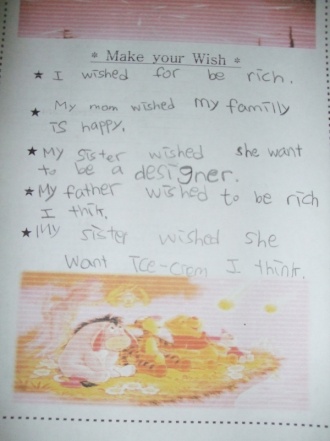 * Make your Wish *
★ I wished for be rich.
★ My mom wished my familly
is happy.
★ My sister wished she want
to be a designer.
★ My father wished to be rich
I thik.
★ My sister wished she
want Ice-crom I think.